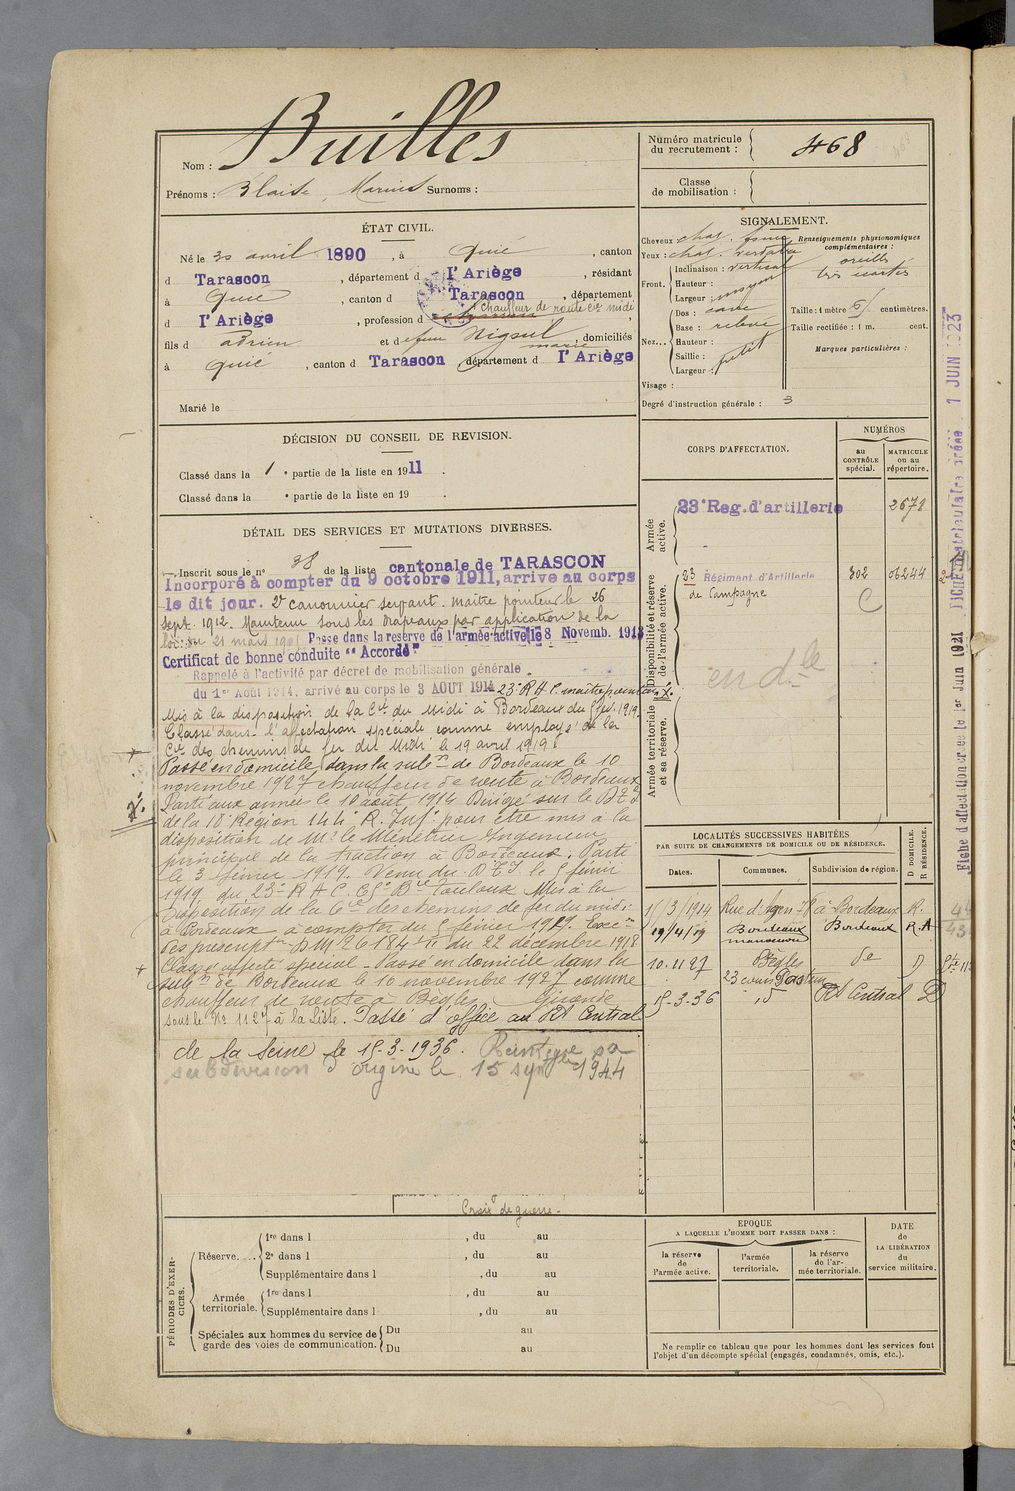 Builles
Nom :
Prénoms : Blaise Marius Surnoms :
Numéro matricule du recrutement : 468
Classe de mobilisation :
ÉTAT CIVIL.
Né le 30 avril 1890, à Quié, canton
d Tarascon, département d l'Ariège, résidant
à Quié, canton d Tarascon, département
chauffeur de route Cie midi
d l'Ariège, profession d
fils d Adrien et d feue Nigoul marie, domiciliés
à Quié, canton d Tarascon département d l'Ariège
Marié le
SIGNALEMENT.
Cheveux chat.
Yeux : chat. verdatre
Front. Inclinaison : vertical
Hauteur :
Largeur : moyen
Nez... Dos : cave
Base : relevé
Hauteur :
Saillie : petit
Largeur :
Visage :
Degré d'instruction générale : 3
Renseignements physionomiques complémentaires :
oreilles
très écartés
Taille : 1 mètre 5 centimètres.
Taille rectifiée : 1 m. cent.
Marques particulières :
DÉCISION DU CONSEIL DE REVISION.
Classé dans la 1 e partie de la liste en 1911.
Classé dans la e partie de la liste en 19 .
CORPS D'AFFECTATION.
NUMÉROS
AU CONTRÔLE spécial.
MATRICULE ou au répertoire.
Armée active.
23e Reg. d'artillerie 2671
Disponibilité et réserve de l'armée active.
23 Régiment d'Artillerie 302 06244
de Campagne C
en dle
Armée territoriale et sa réserve.
DÉTAIL DES SERVICES ET MUTATIONS DIVERSES.
Inscrit sous le n° 38 de la liste cantonale de TARASCON
Incorporé à compter du 9 octobre 1911, arrivé au corps
le dit jour. 2e canonnier servant. Maître pointeur le 26
sept. 1912. Maintenu sous les drapeaux par application de la
loi du 21 mars 1905 Passe dans la reserve de l'armée active le 8 Novemb. 1913
Certificat de bonne conduite "Accordé"
Rappelé à l'activité par décret de mobilisation générale
du 1er Août 1914, arrivé au corps le 3 AOUT 1914 23e R.A.C. maître pointeur
Mis à la disposition de la Cie du Midi à Bordeaux du 5 fév. 1919
Classé dans l'affectation spéciale comme employé de la
Cie des chemins de fer du Midi le 19 avril 1919
Passé en domicile dans la subon de Bordeaux le 10
novembre 1927 chauffeur de route à Bordeaux
Parti aux armées le 10 août 1914 Dirigé sur le D.T.I
de la 18e Région 144e R. Inf. pour être mis à la
disposition de Mr le Ménétrier Ingénieur
principal de la traction à Bordeaux. Parti
le 3 février 1919. Venu du D.T.I le 5 février
1919 du 23e R.A.C. Toulouse Mis à la
disposition de la Cie des chemins de fer du midi
à Bordeaux à compter du 5 février 1919.
des prescriptons D.M 26184 du 22 décembre 1918
Classé affecté spécial. Passé en domicile dans la
subon de Bordeaux le 10 novembre 1927 comme
chauffeur de route à Bègles Gironde
sous le No 1127 à la Liste. Passé d'office au Rt Central
de la Seine le 15-3-1936. Réintègre sa
subdivision d'origine le 15 1944
Croix de guerre.
LOCALITÉS SUCCESSIVES HABITÉES
PAR SUITE DE CHANGEMENTS DE DOMICILE OU DE RÉSIDENCE.
Dates. Communes. Subdivision de région. D DOMICILE. R RÉSIDENCE.
1/3/1914 Rue d'Agen 78 à Bordeaux R.
19/4/19 Bordeaux Bordeaux R.A
manoeuvre
10.11 27 Bègles de D
23 cours Pasteur
15-3-36 Rt Central D
Fiche d'affectation créée le 1er Juin 1921
FICHE matriculaire créée 1 JUIN 1923
PÉRIODES D'EXERCICES.
Réserve.... 1re dans l , du au
2e dans l , du au
Supplémentaire dans l , du au
Armée territoriale. 1re dans l , du au
Supplémentaire dans l , du au
Spéciales aux hommes du service de garde des voies de communication. Du au
Du au
EPOQUE
A LAQUELLE L'HOMME DOIT PASSER DANS :
la réserve de l'armée active.
l'armée territoriale.
la réserve de l'armée territoriale.
DATE DE LA LIBÉRATION du service militaire.
Ne remplir ce tableau que pour les hommes dont les services font
l'objet d'un décompte spécial (engagés, condamnés, omis, etc.).